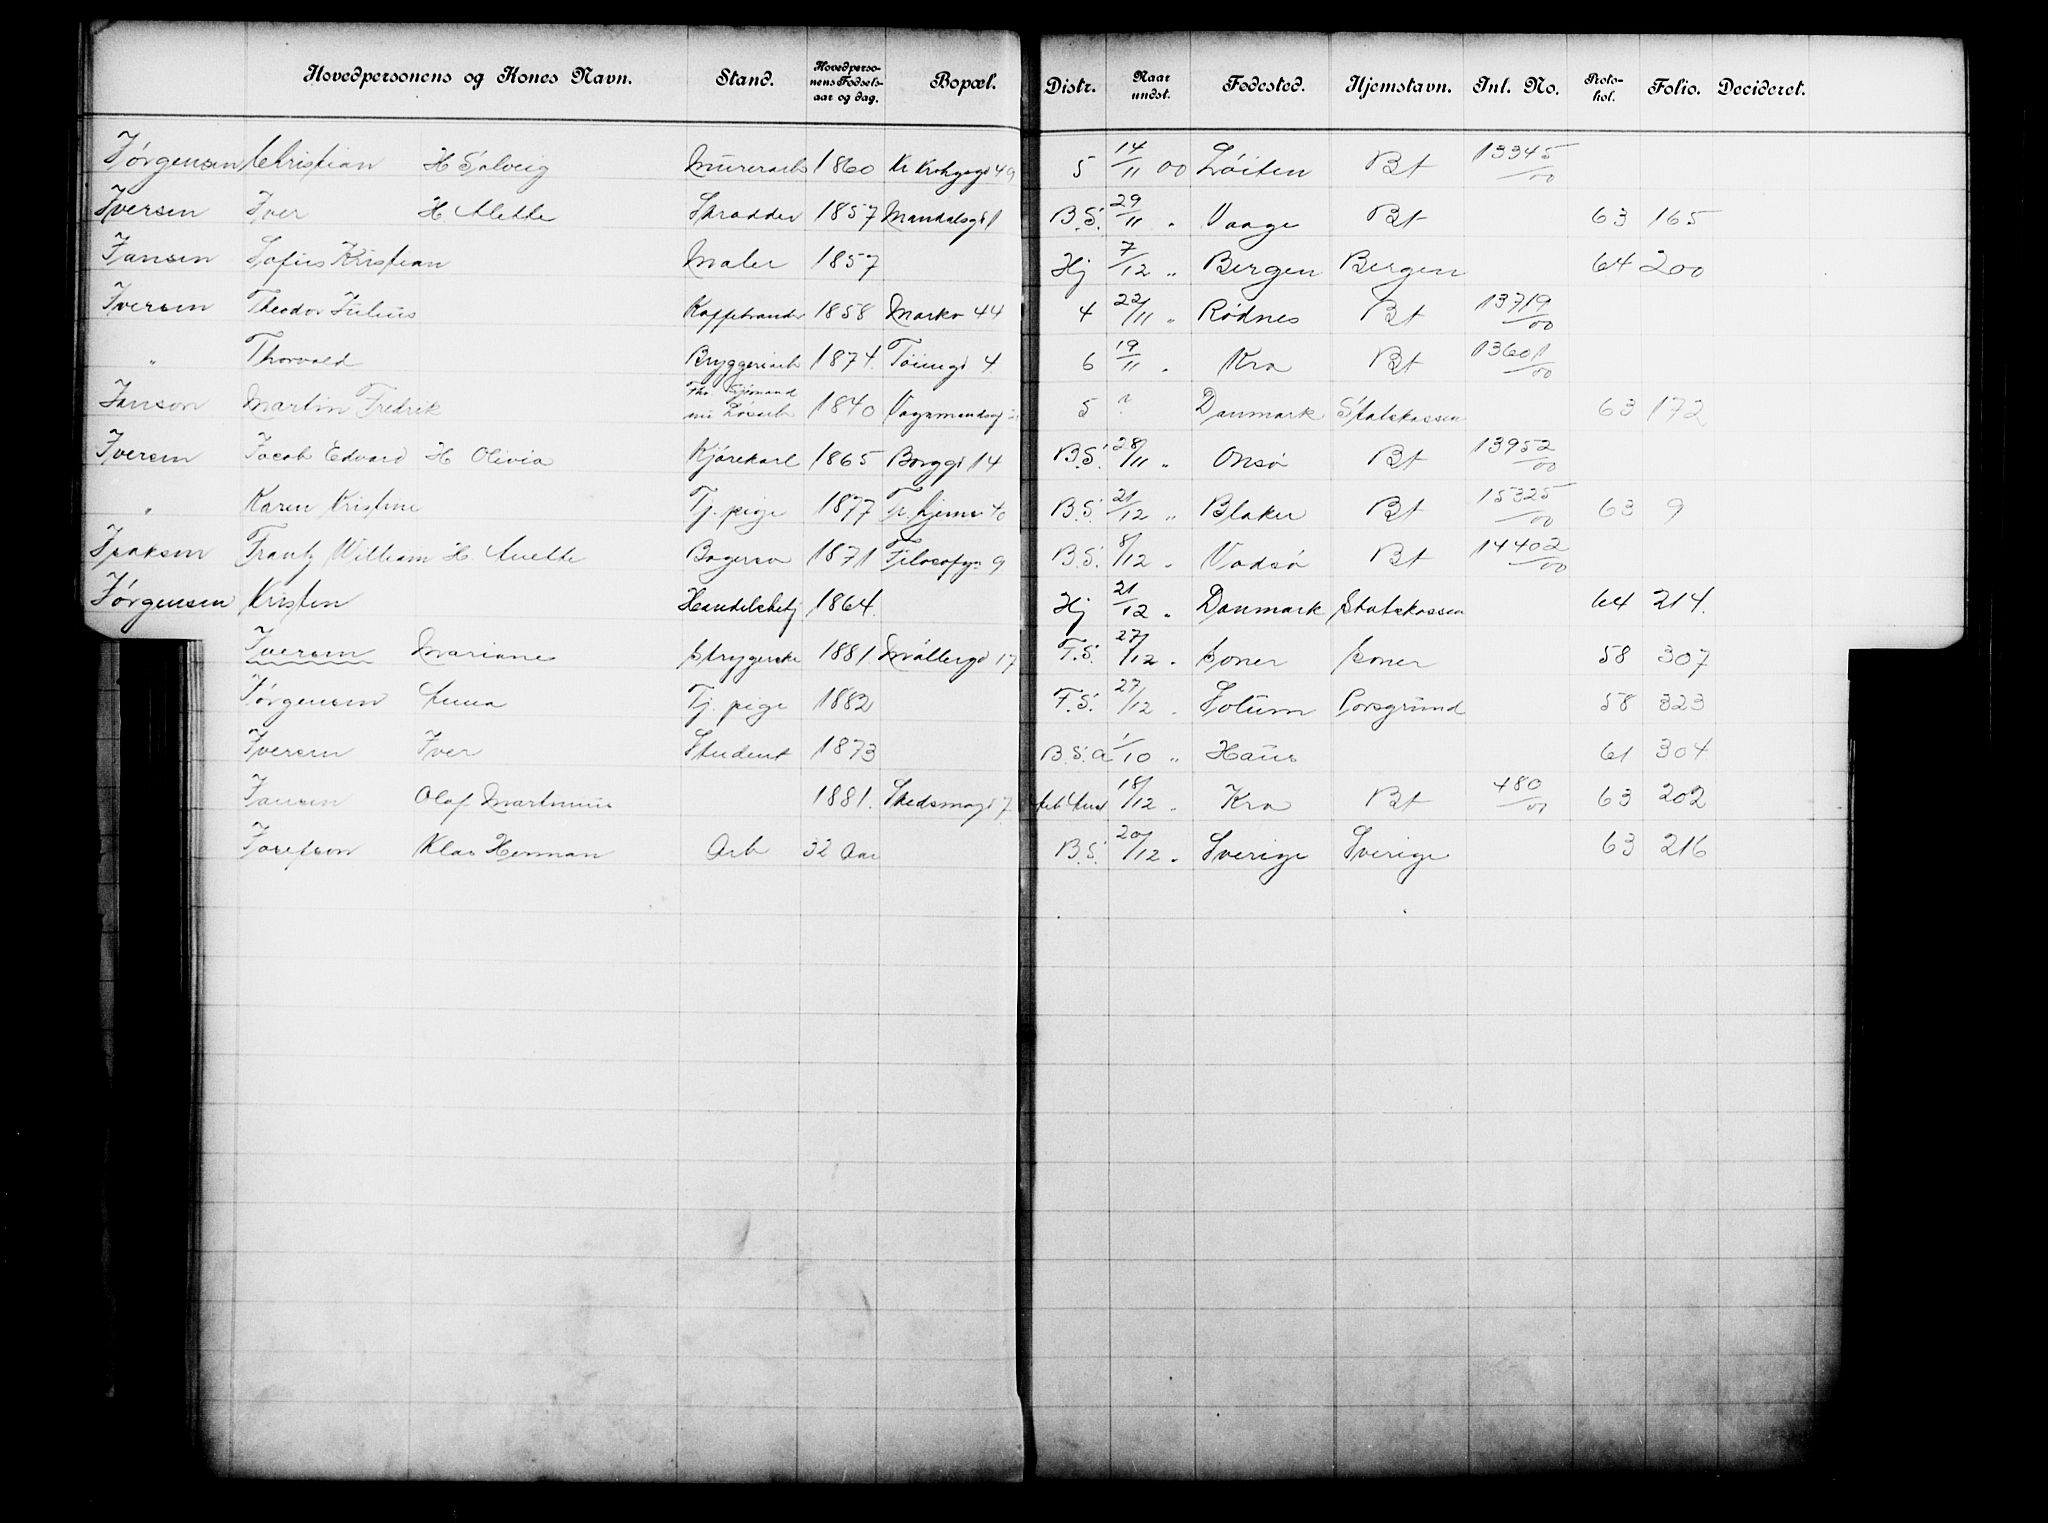 Hovedpersonens og Kones Navn. Stand. Hovedpersonens Fødselsaar og dag. Bopæl. Distr. Naar undst. Fødested. Hjemstavn. Inl. No. Protokol. Folio. Decideret.
Jørgensen Christian H Solveig Murerarb 1860 Kr Krohgsgd 49 5 14/11 00 Löiten Bt 13345/00
Iversen Iver H. Alette Skrædder 1857 Mandalsgd 1 B.S. 29/11 " Vaage Bt 63 165
Jansen Sofus Kristian Maler 1857 Hj 7/12 " Bergen Bergen 64 200
Iversen Theodor Julius Kaffebrænder 1858 Markv 44 4 22/11 " Rødnes Bt 13719/00
" Thorvald Bryggeriarb 1874. Töiengd 4. 6 19/11 " Kra Bt 13601/00
Janson Martin Fredrik Sjömand nu Lösarb 1840 Vognmandsgd 5 ? Danmark Statskassen 63 172
Iversen Jacob Edvard H Olivia Kjørekarl 1865 Borggd 14 B.S. 28/11 " Onsø Bt 13952/00
" Karen Kristine Tj. pige 1877 Tr. hjems 40 B.S. 21/12 " Blaker Bt 15325/00 63 9
Isaksen Frantz William H Anette Bogersv 1871 Filosofgn 9 B.S. 8/12 " Vadsø Bt 14402/00
Jørgensen Kristen Handelsbetj 1864. Hj 21/12 " Danmark Statskassen 64 214.
Iversen Mariane Strygerske 1881. Møllergd 17 F.S. 27/12 " Soner Soner 58 307
Jørgensen Anna Tj. pige 1882 F.S. 27/12 " Solum Porsgrund 58 323
Iversen Iver Student 1873 B.S. a 1/10 " Haus 61 304
Jansen Olaf Martinius 1881. Skedsmogd 7. 18/12 " Kra Bt 480/01 63 202
Josefson Klas Herman Arb 32 Aar B.S. 20/12 " Sverige Sverige 63 216